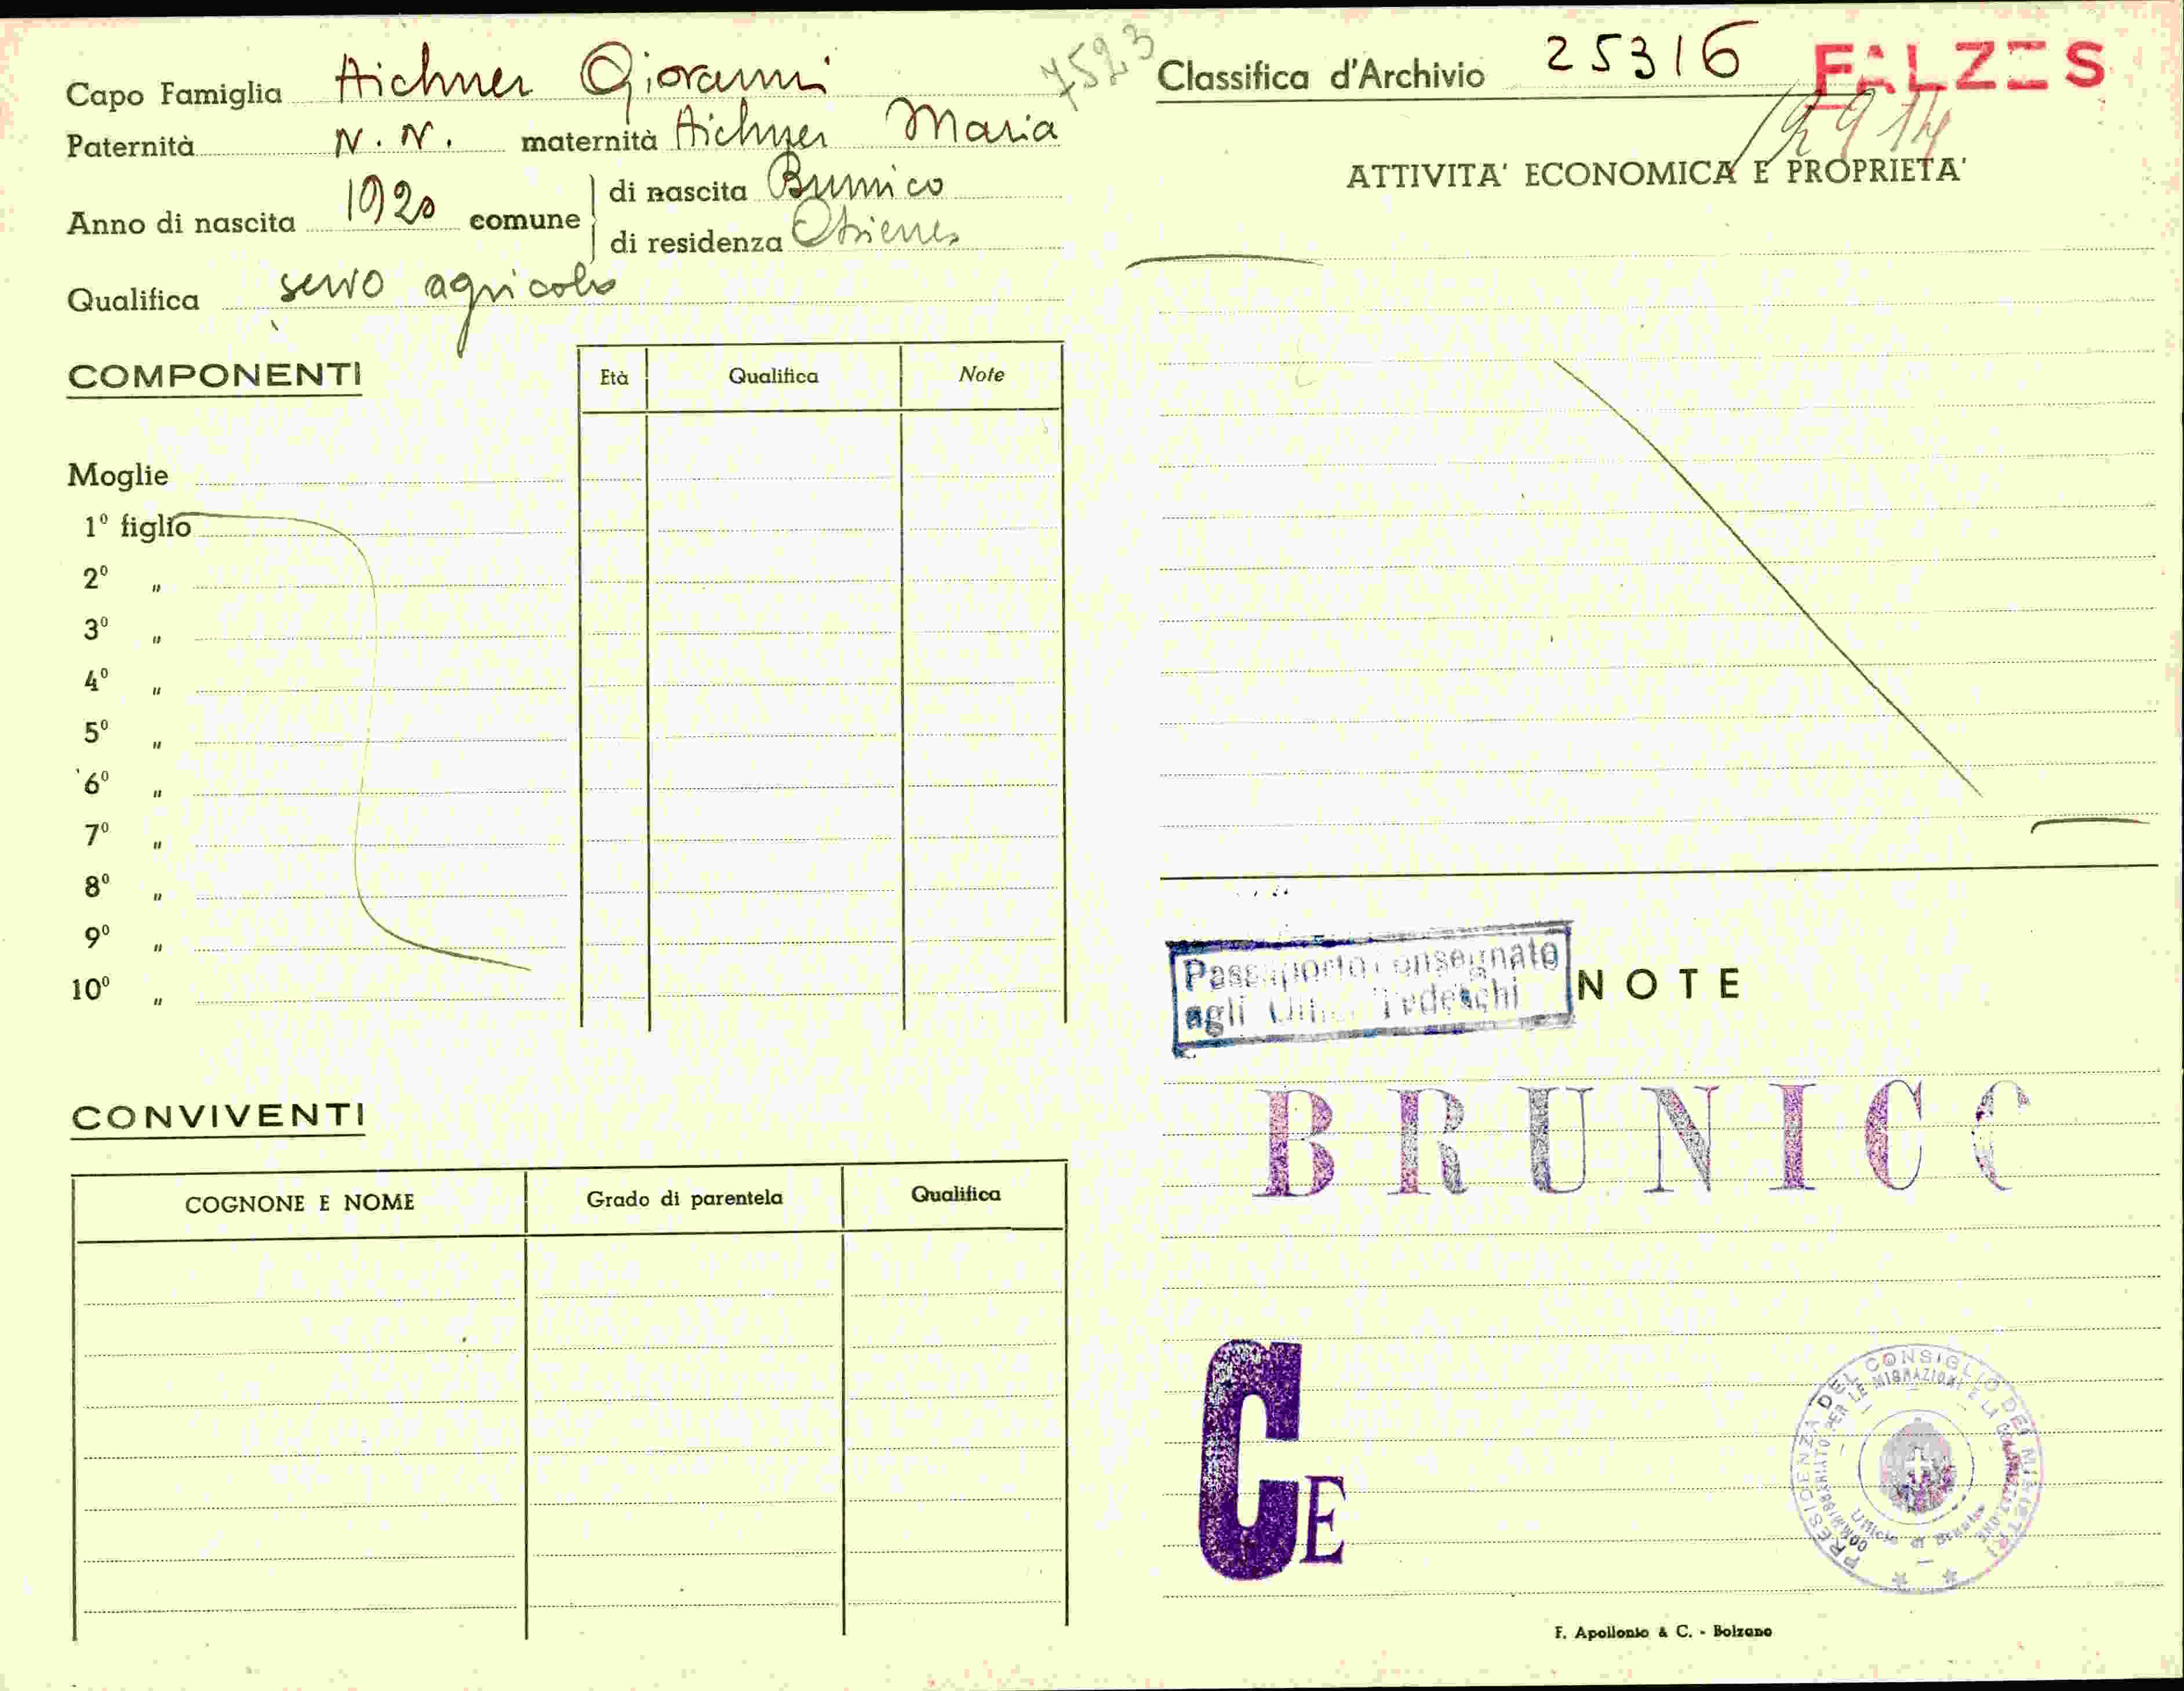 Capo Famiglia Aichner Giovanni
7523
Classifica d'Archivio 25316 FALZES
Paternità N. N. maternità Aichner Maria
Anno di nascita 1920 comune
di nascita Brunico
di residenza
Qualifica servo agricolo
ATTIVITA' ECONOMICA E PROPRIETA'
COMPONENTI
Età Qualifica Note
Moglie
1º figlio
2º "
3º "
4º "
5º "
6º "
7º "
8º "
9º "
10º "
CONVIVENTI
COGNONE E NOME Grado di parentela Qualifica
Passaporto consegnato
agli Uffici Tedeschi
NOTE
BRUNICO
CE
PRESIDENZA DEL CONSIGLIO DEI MINISTRI
COMMISSARIATO PER LE MIGRAZIONI E LA COLONIZZAZIONE
Ufficio di Brunico
F. Apollonio & C. - Bolzano